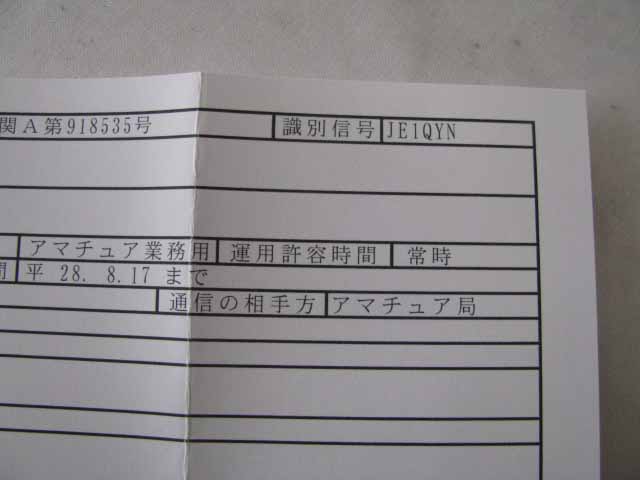 関A第918535号 識別信号 JE1QYN
アマチュア業務用 運用許容時間 常時
平 28. 8.17 まで
通信の相手方 アマチュア局